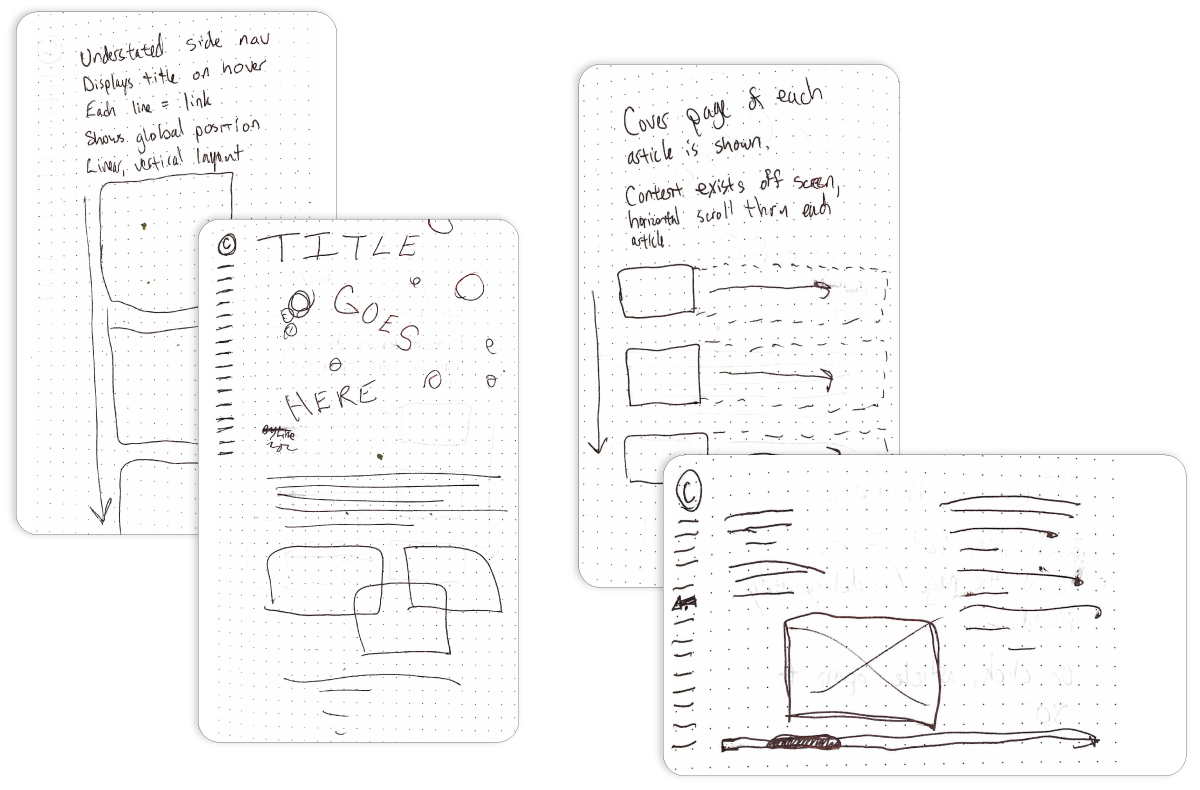 Understated side nav
Displays title on hover
Each line = link
Shows global position
Linear, vertical layout
C
TITLE
GOES
HERE
Byline
Cover page of each
article is shown.
Content exists off screen,
horizontal scroll thru each
article.
C